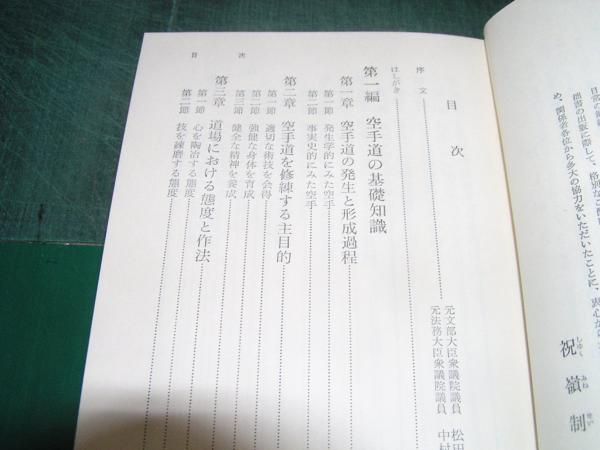 日常の
拙書の出版に際して、格別なご
め、関係各位から多大の協力をいただいたことに、衷心か
祝嶺制
しゆくみねせい
目次
序文
元文部大臣衆議院議員 松田
元法務大臣衆議院議員 中村
はしがき
第一編 空手道の基礎知識
第一章 空手道の発生と形成過程
第一節 発生学的にみた空手
第二節 事実史的にみた空手
第二章 空手道を修練する主目的
第一節 適切な術技を会得
第二節 強健な身体を育成
第三節 健全な精神を養成
第三章 道場における態度と作法
第一節 心を陶冶する態度
第二節 技を錬磨する態度
目次